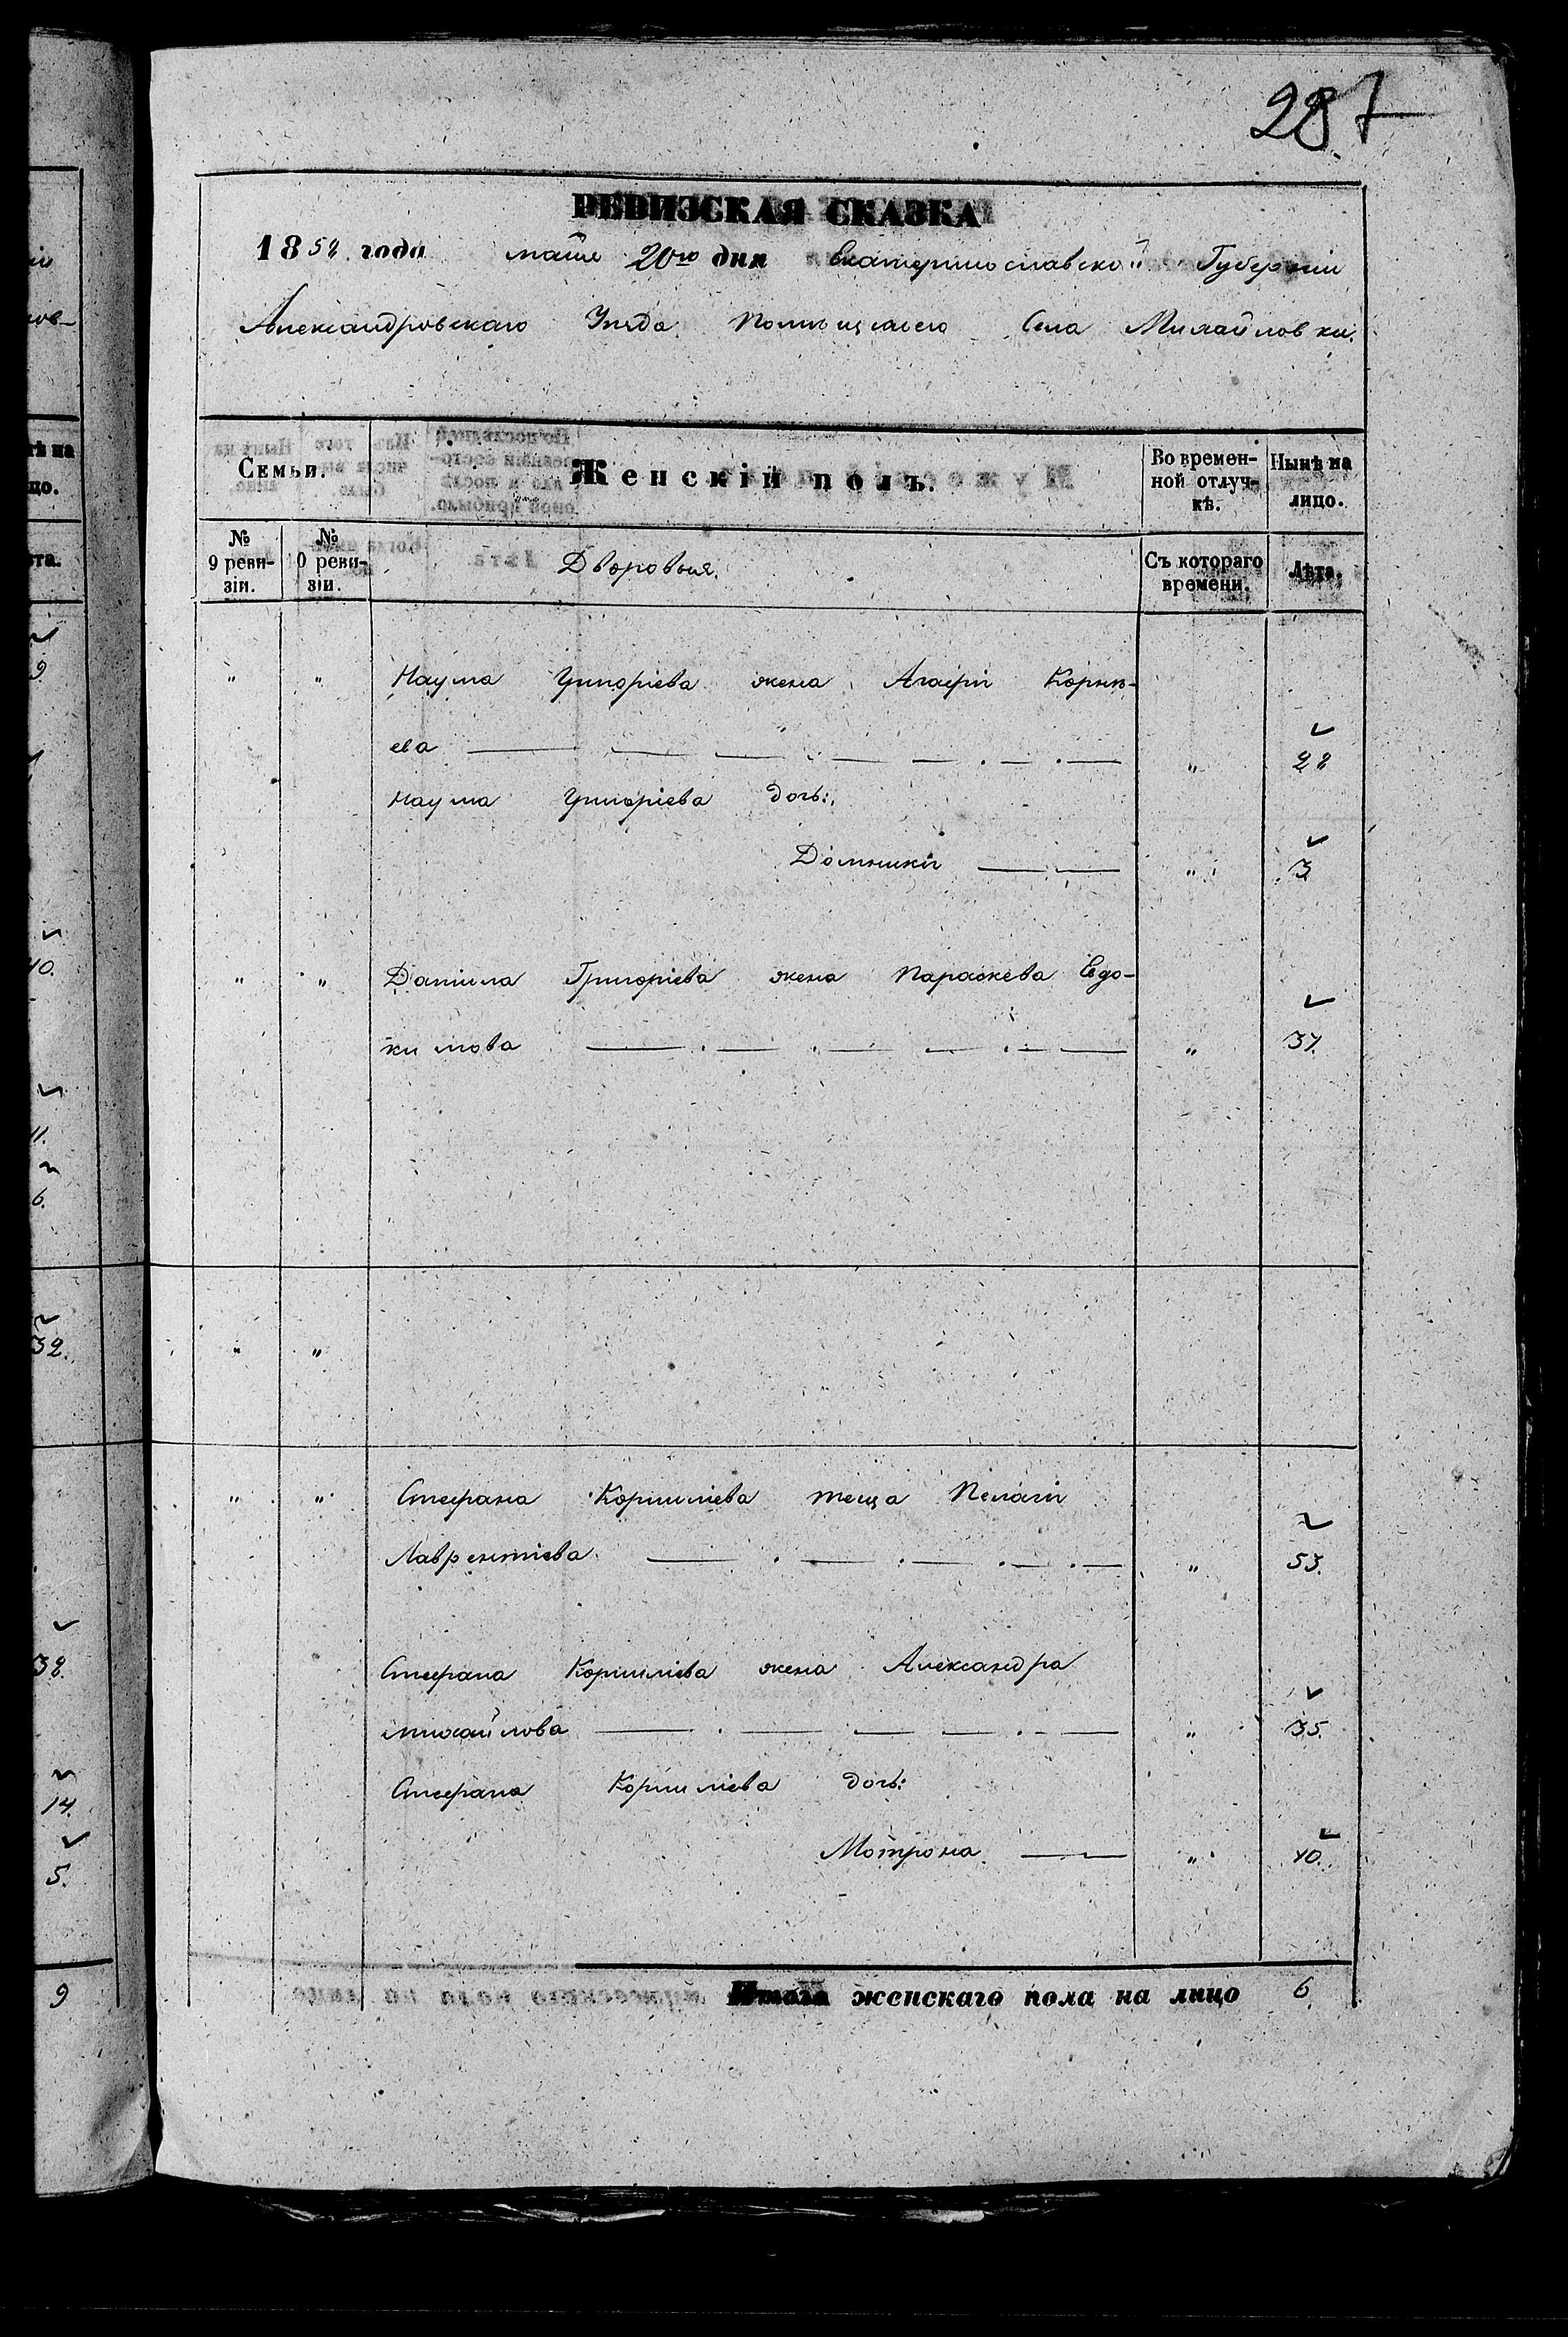 287
РЕВИЗСКАЯ СКАЗКА
1858 года маія 20го дня Екатеринославской Губерніи
Александровскаго Уѣзда Помѣщичьего Села Михайловки.
Семьи. Женскій полъ. Во времен-ной отлуч-кѣ. Нынѣ на лицо.
№ 9 реви-зіи. № 0 реви-зіи. Дворовыя. Съ котораго времени. Лѣта.
" " Наума Григоріева жена Агафія Корнѣ-
ева " 28
Наума Григоріева дочь:
Домникія " 3
" " Даніила Григоріева жена Параскева Евдо-
кимова " 37.
" "
" " Стефана Корнилієва теща Пелагія
Лаврентіева " 53.
Стефана Корниліева жена Александра
Михайлова " 35.
Стефана Корниліева дочь:
Мотрона " 10.
Итого женскаго пола на лицо 6